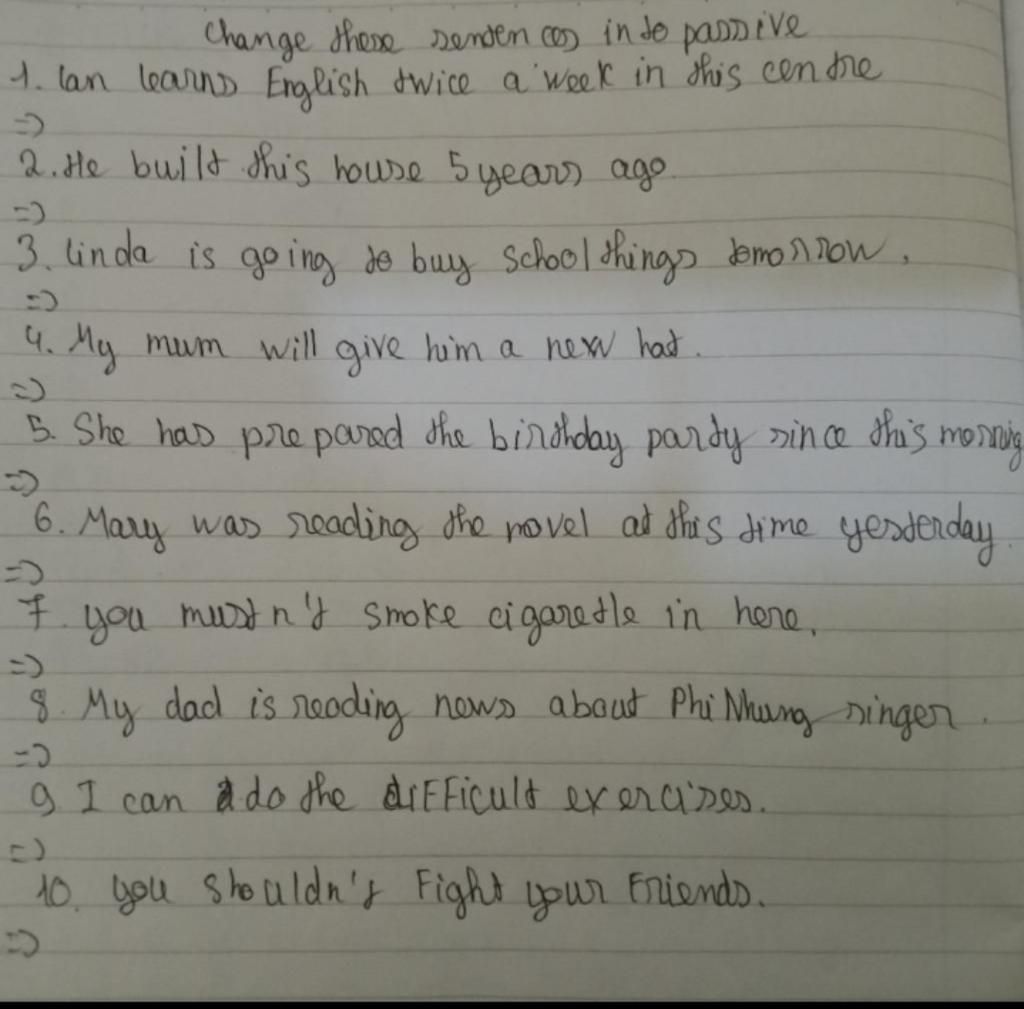 Change these sentences into passive
1. Ian learns English twice a week in this centre
=>
2. He built this house 5 years ago.
=>
3. Linda is going to buy school things tomorrow.
=>
4. My mum will give him a new hat.
=>
5. She has prepared the birthday party since this morning
=>
6. Mary was reading the novel at this time yesterday.
=>
7. you mustn't smoke cigarette in here.
=>
8. My dad is reading news about Phi Nhung singer.
=>
9. I can do the difficult exercises.
=>
10. you shouldn't fight your friends.
=>